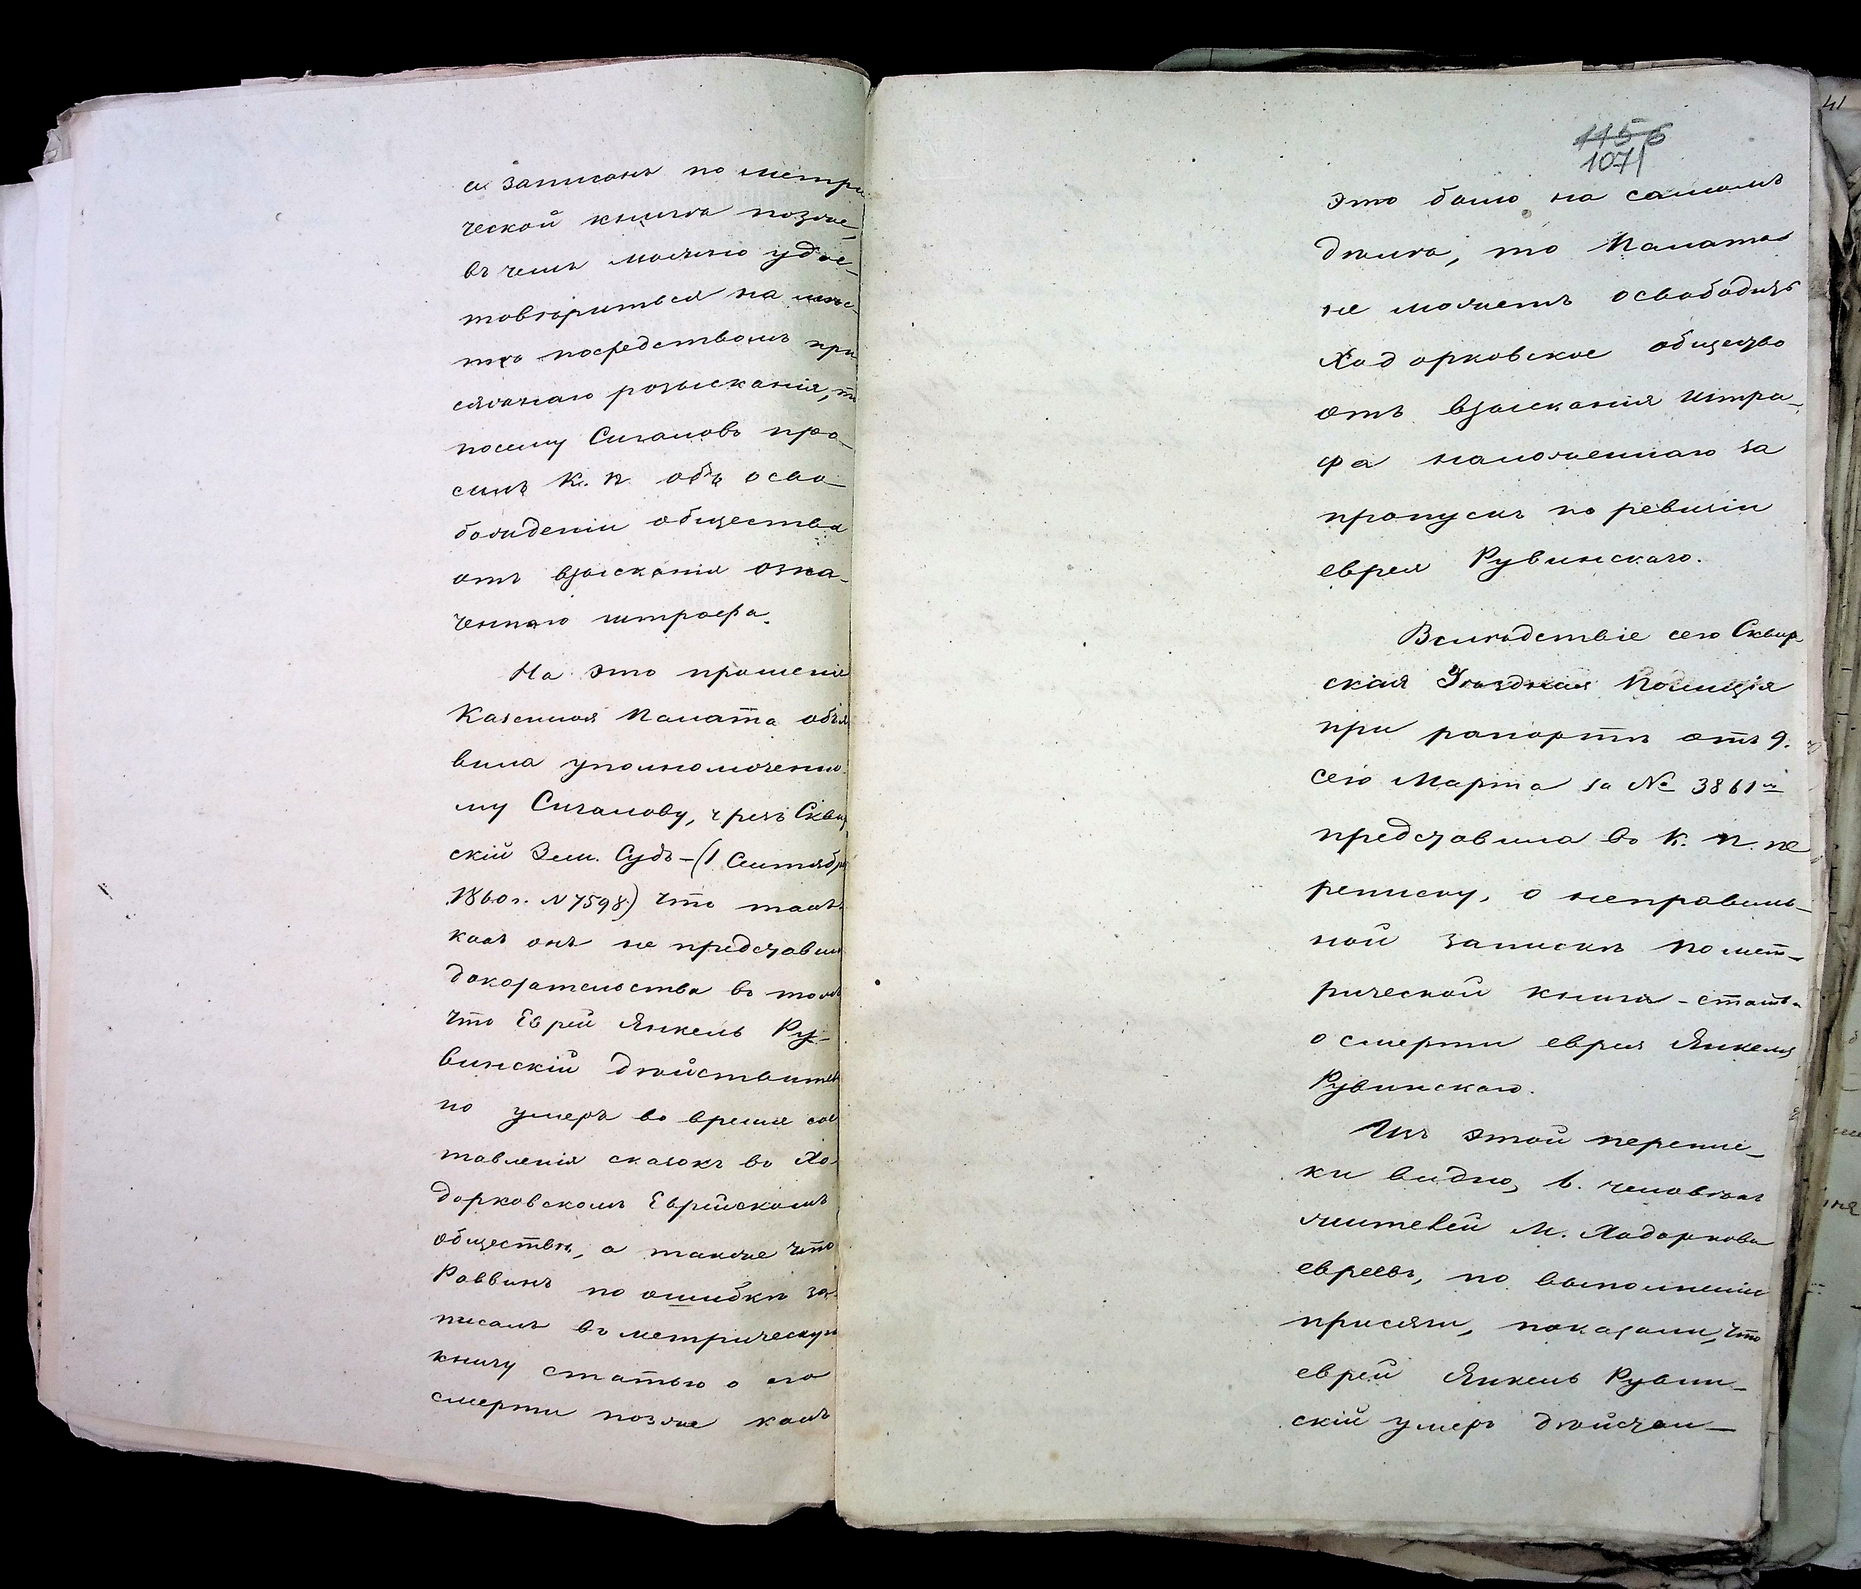 а записанъ по метри
ческой книгѣ позже,
въ чемъ можно удос-
товѣриться на мѣс-
тѣ посредствомъ при
сяжнаго розысканія, то
посему Сигаловъ про-
ситъ К. П. объ осво-
божденіи общества
отъ взысканія озна-
ченнаго штрафа.
На это прошеніе
Казенная Палата объя
вила уполномоченно-
му Сигалову, чрезъ Сквир
скій Зем. Судъ – (1 Сентября
1860 г. N 7598) что такъ
какъ онъ не представилъ
доказательства въ томъ
что Еврей Янкель Ру-
винскій дѣйствитель
но умеръ во время сос
тавленія сказокъ въ Хо-
дорковскомъ Еврейскомъ
обществѣ, а также что
Раввинъ по ошибкѣ за-
писалъ въ метрическую
книгу статью о его
смерти позже какъ
1156
107
это было на самомъ
дѣлѣ, то Палата
не можетъ освободить
Ходорковское общество
отъ взысканія штра-
фа наложеннаго за
пропускъ по ревизіи
еврея Рувинскаго.
Вслѣдствіе сего Сквир
ская Уѣздная Полиція
при рапортѣ отъ 9.
сего Марта за № 3861 м
представила въ К. П. пе
реписку, о неправиль-
ной запискѣ по мет-
рической книгѣ – статьи
о смерти еврея Янкеля
Рувинскаго.
Изъ этой перепис-
ки видно, 6. человѣкъ
жителей м. Ходоркова
евреевъ, по выполненіи
присяги, показали, что
еврей Янкель Рувин-
скій умеръ дѣйстви-
41